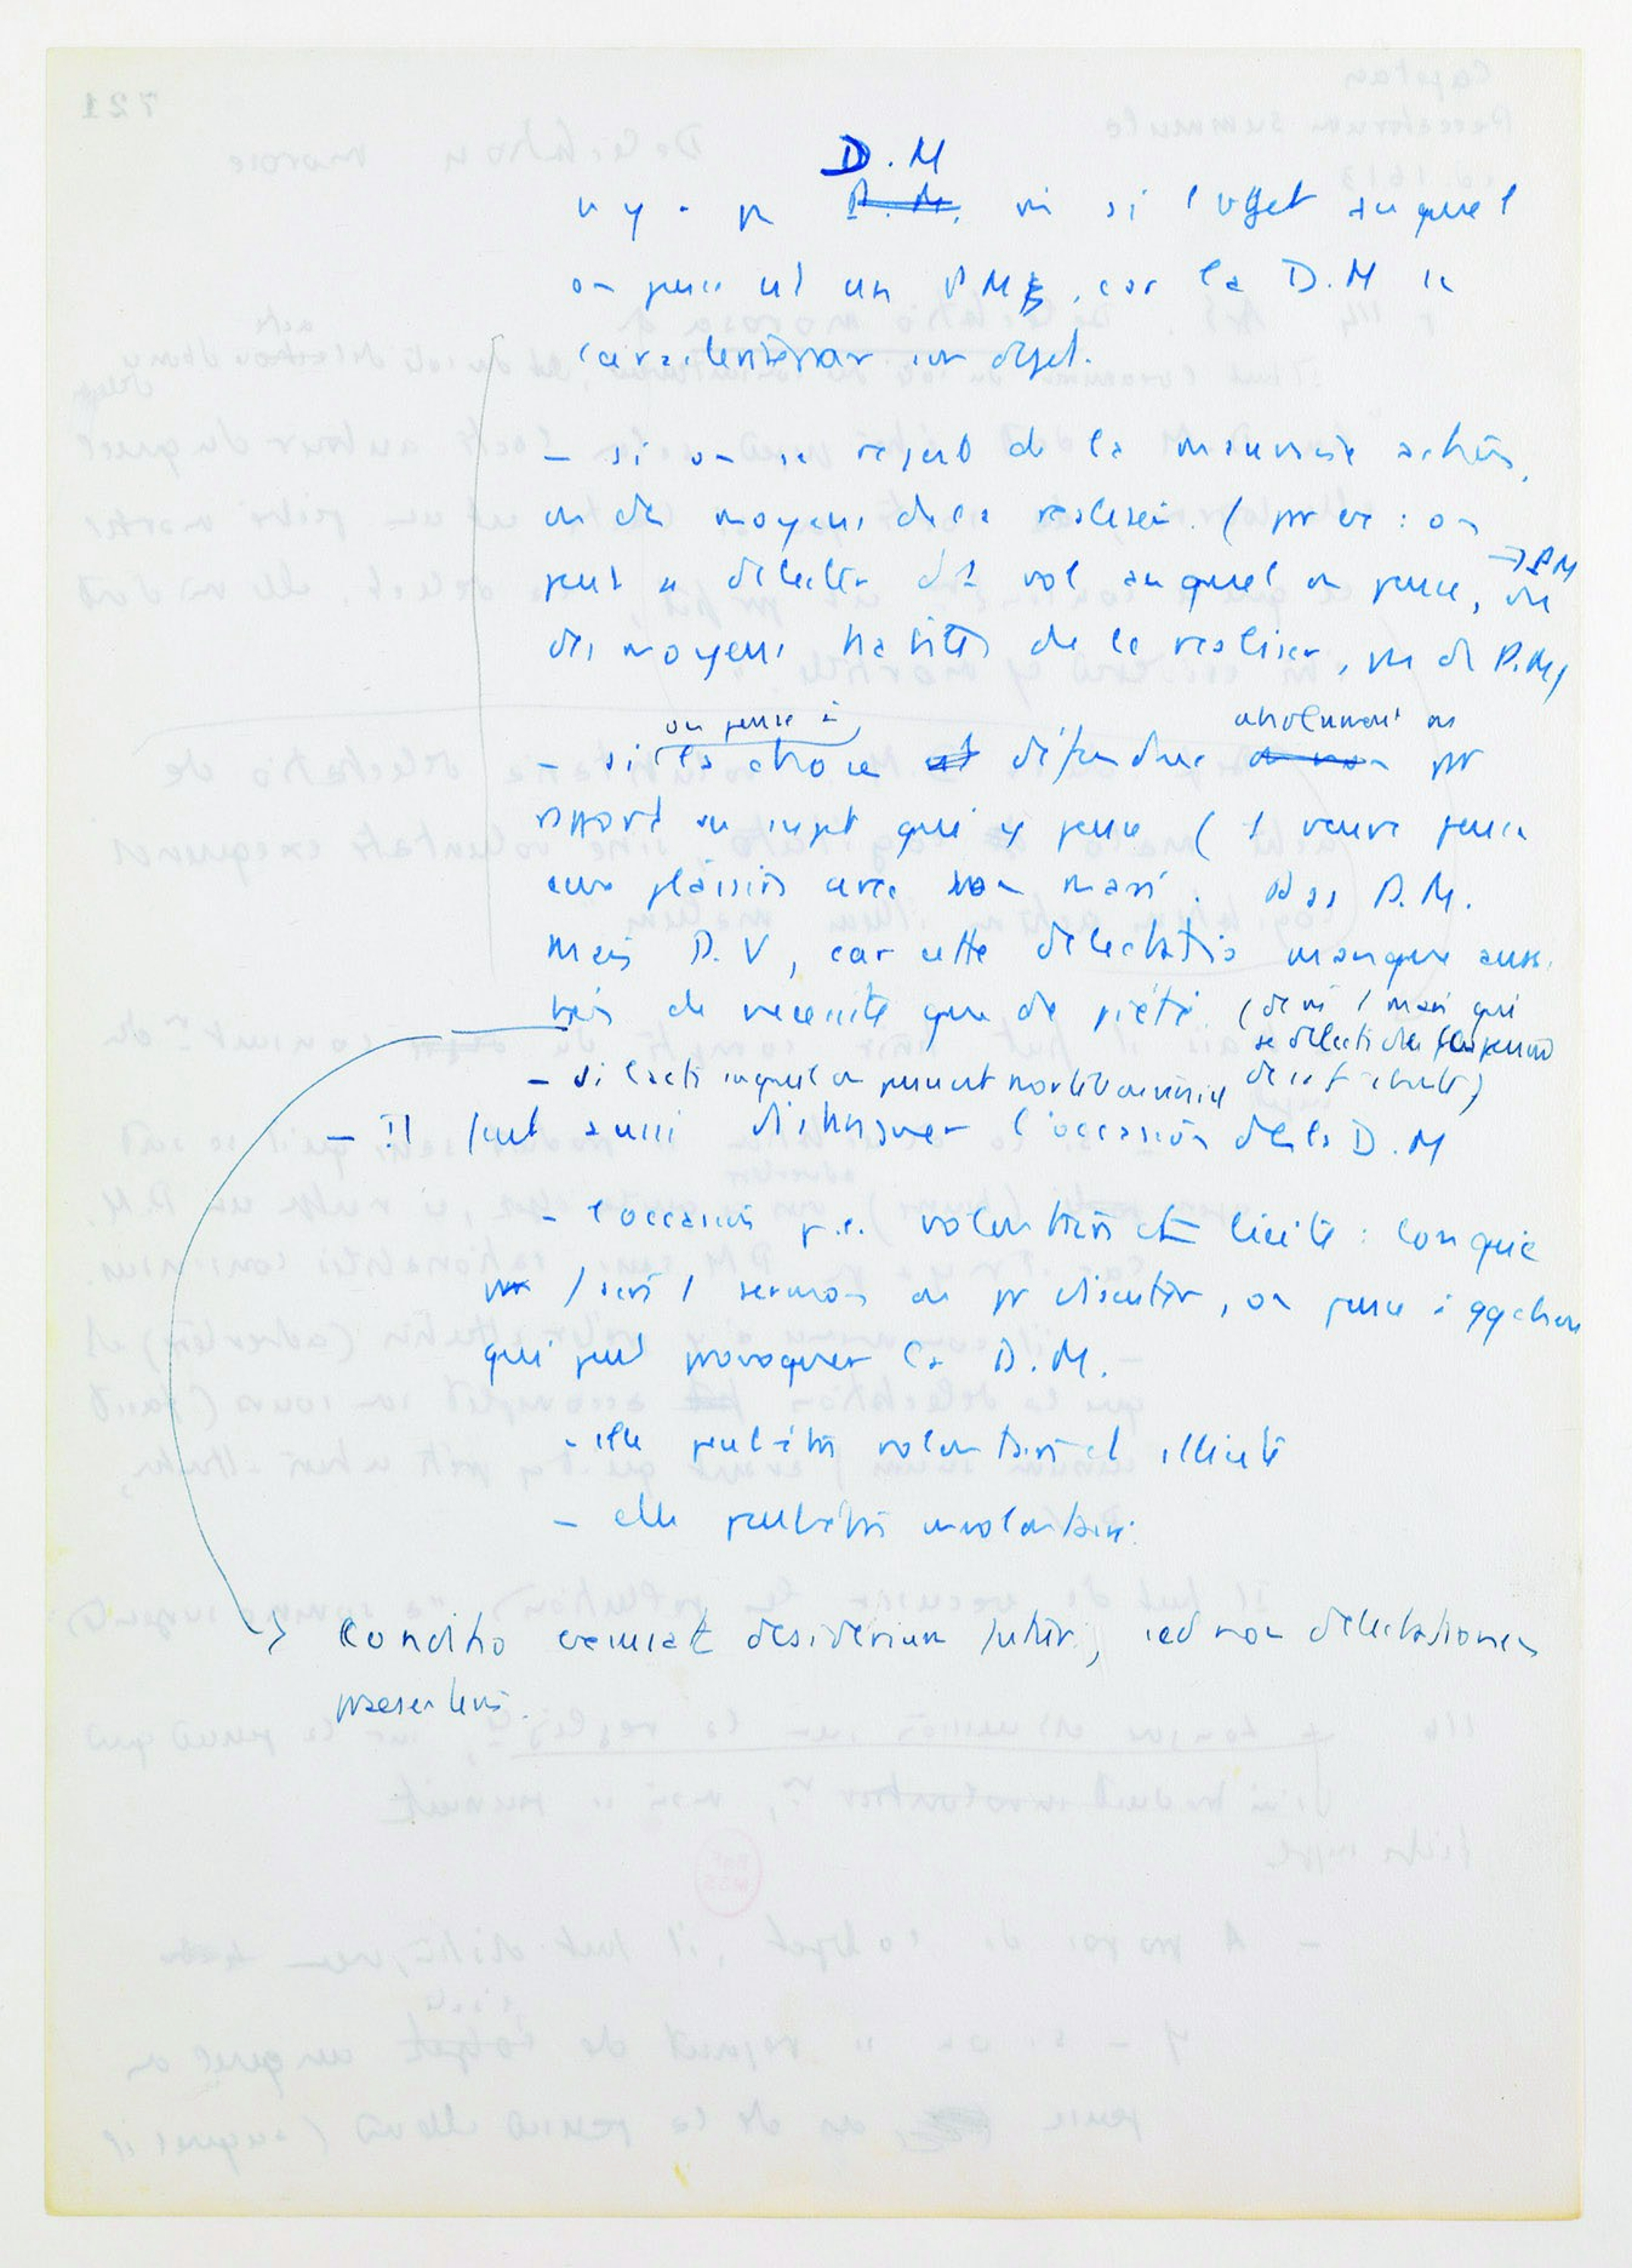 D.M
n'y a pas P.M. ou si l'objet auquel
on pense est un P.M, car la D.M se
caractérise par son objet.
- si on se réjouit de la mauvaise action,
ou des moyens de la réaliser. (par ex : on
peut se délecter du vol auquel on pense, → PM ou
des moyens habiles de le réaliser, pas de P.M)
- si on pense à la chose est défendue absolument ou par
rapport au sujet qui y pense (1 veuve pense
aux plaisirs avec son mari. Pas P.M.
mais P.V, car cette délectatio manque aussi
bien de nécessité que de piété. (de m 1 mari qui
se délecte de la pensée
de sa f absente)
- si l'acte auquel on pense est mortel ou véniel
- Il faut aussi distinguer l'occasion de la D.M
- l'occasion p.e. volontaire et licite : lorsque
pr faire 1 sermon ou pr discuter, on pense à qq chose
qui peut provoquer la D.M.
- elle peut être volontaire et illicite
- elle peut être involontaire.
→ Conditio excusat desiderium futur, sed non delectationem
praesentem.